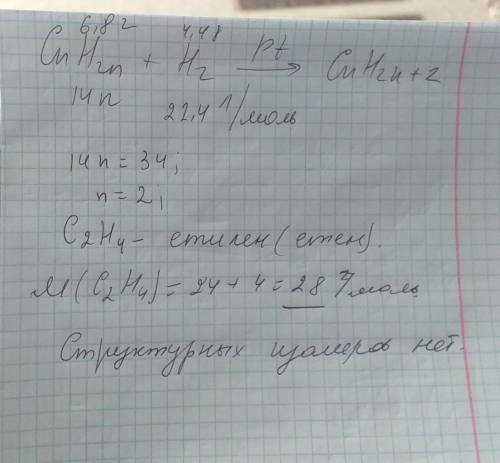 6,8г 4,48
CnH2n + H2 Pt → CnH2n+2
14n 22,4 л/моль
14n = 34;
n = 2;
C2H4 - етилен (етен).
M(C2H4) = 24 + 4 = 28 г/моль
Структурных изомеров нет.